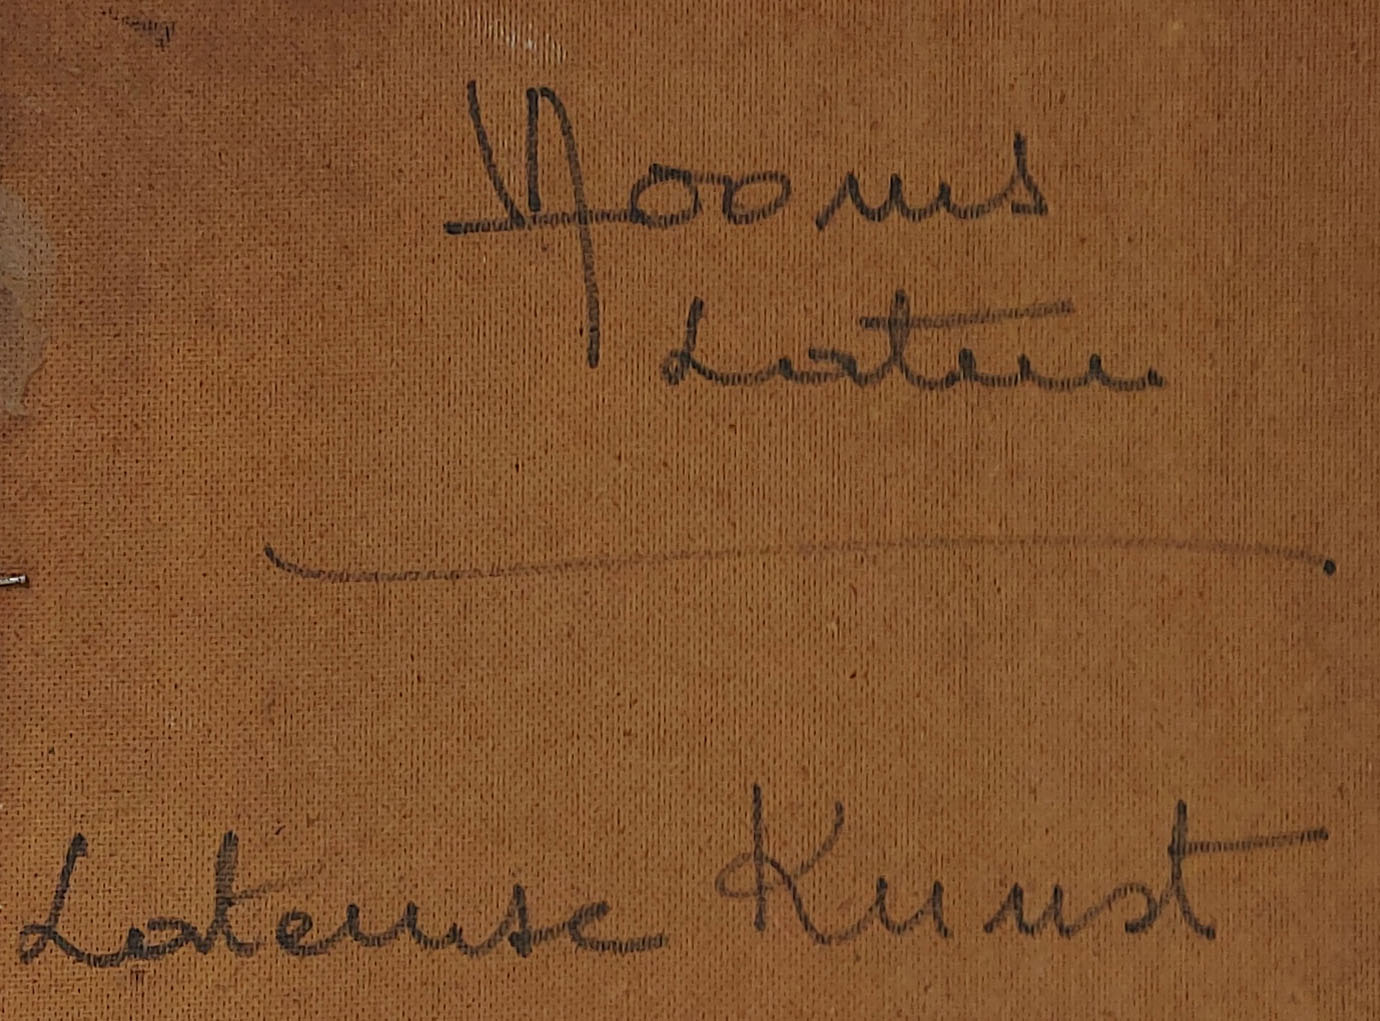 Nooms
Latem
Latemse Kunst